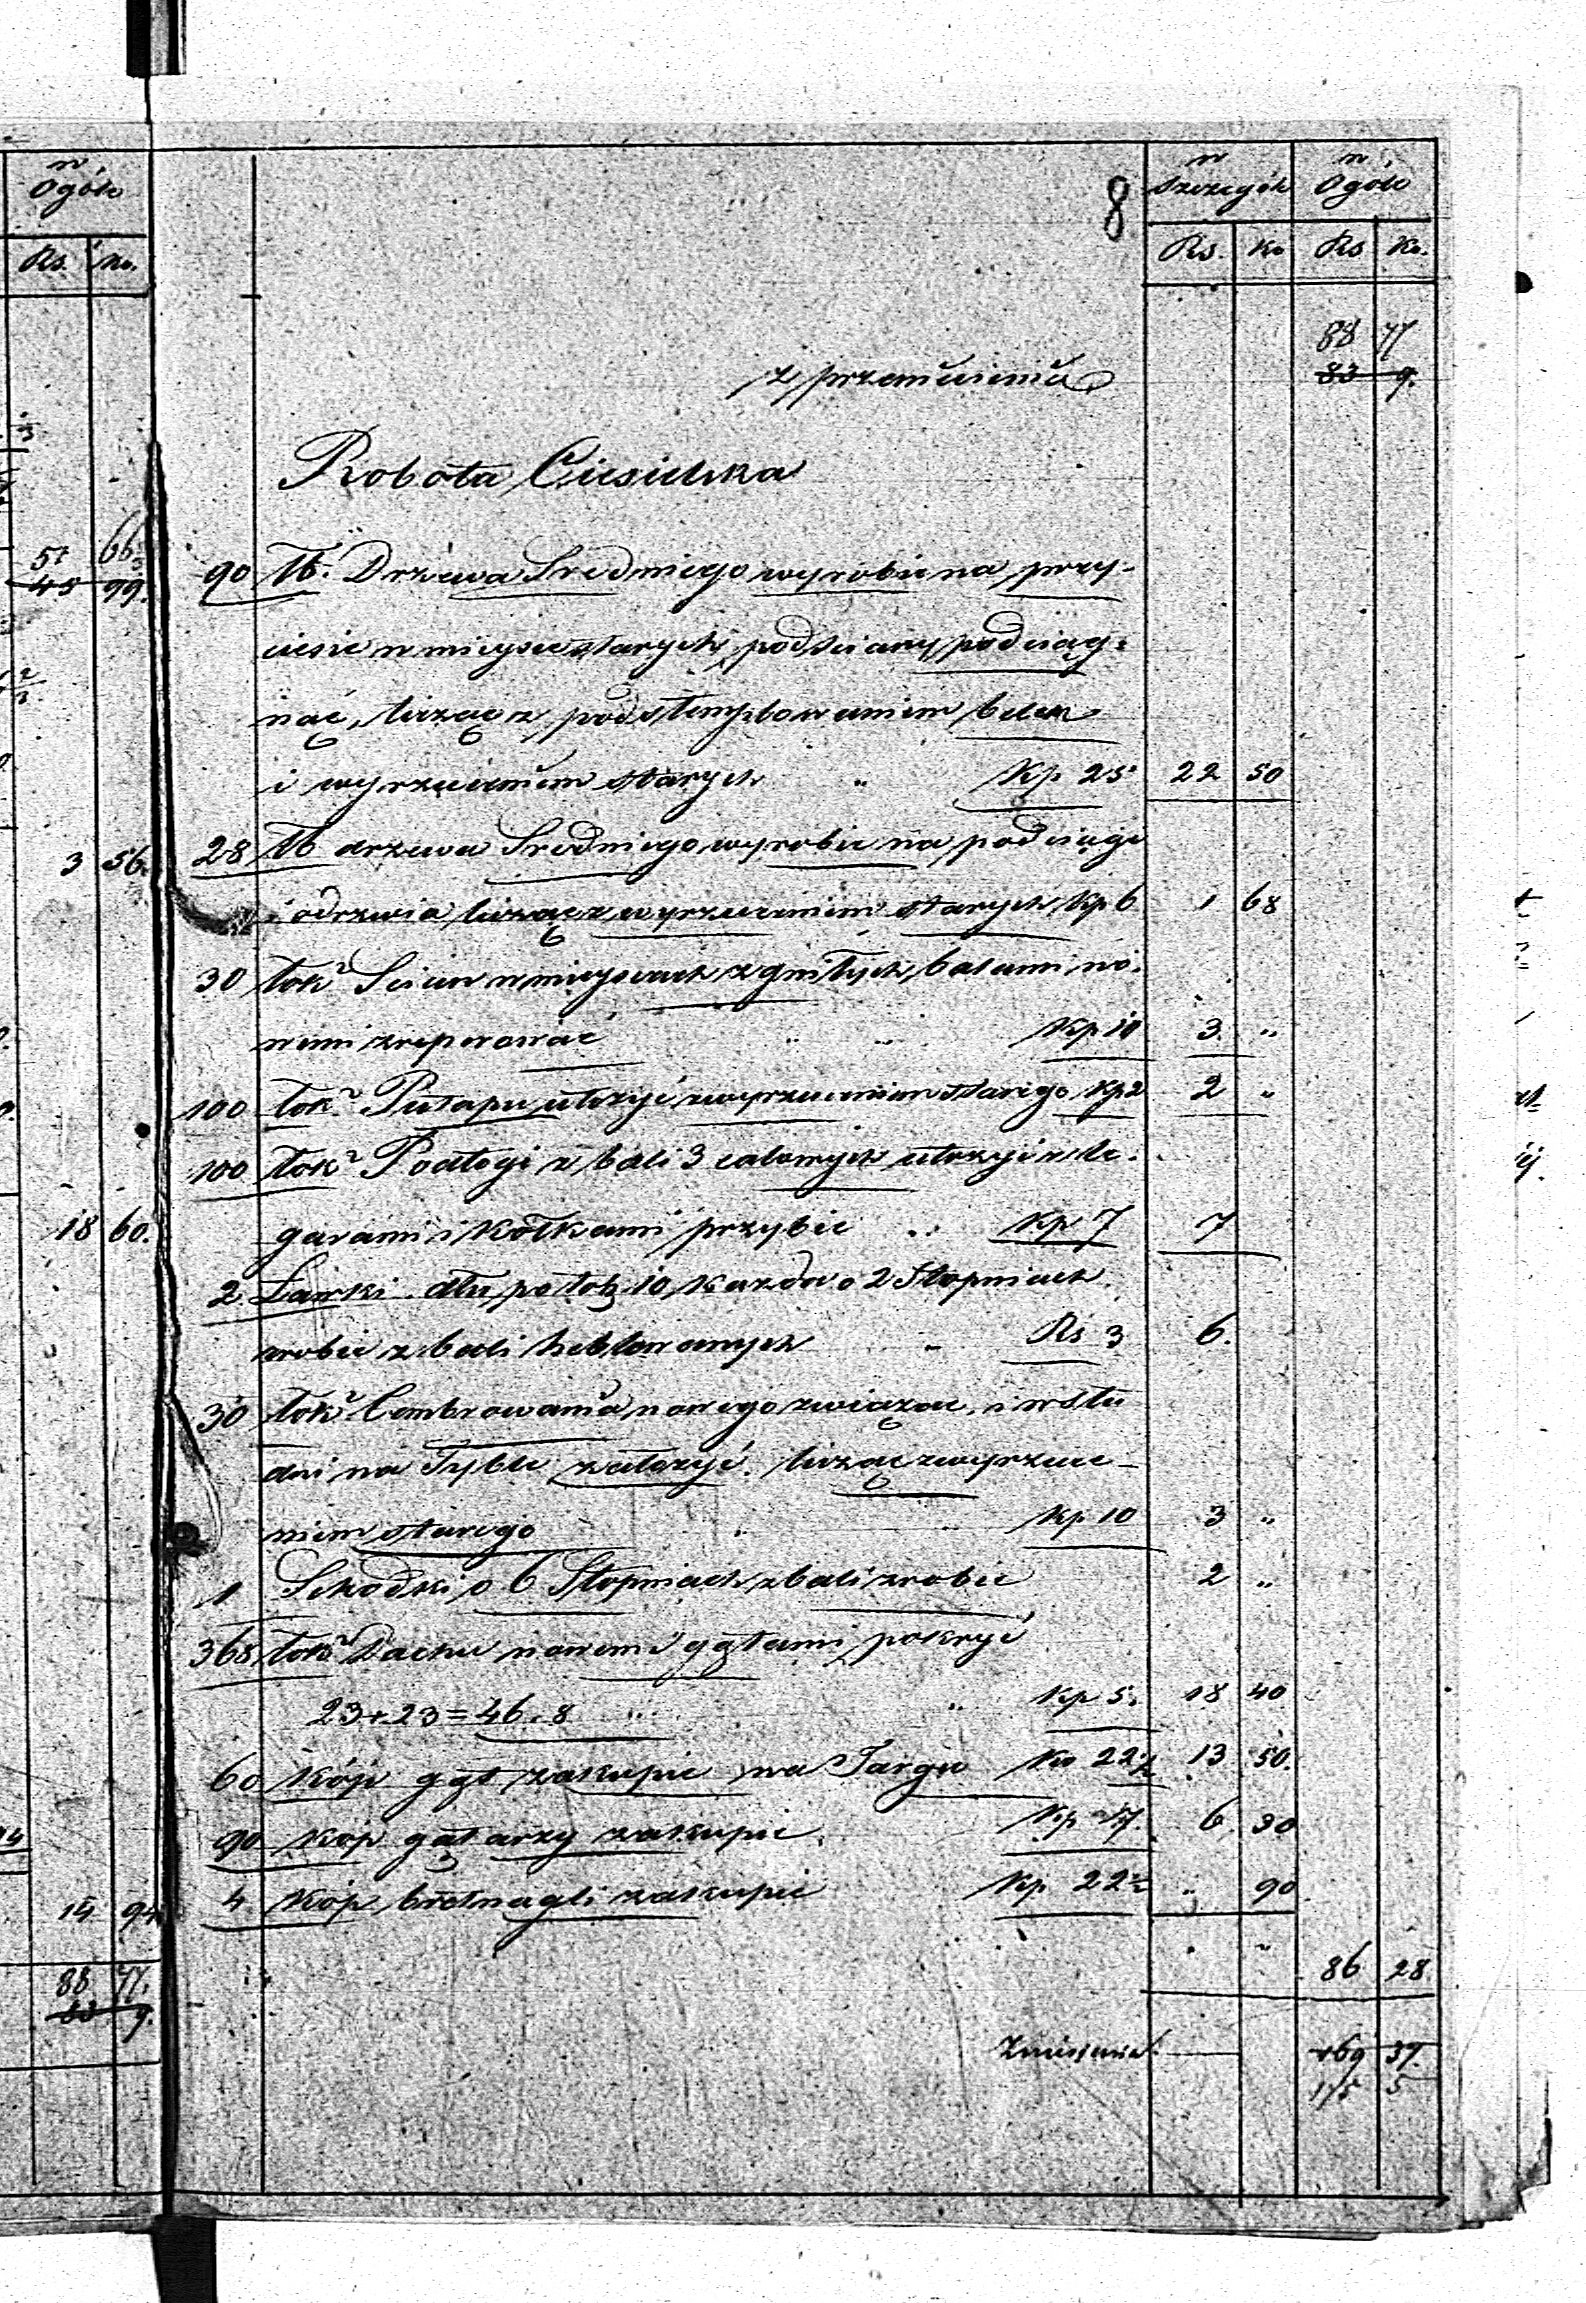 w
Ogóle
Rs. ko.
51 66
45 99.
3 56.
18 60.
14 94
88 77.
83 9.
8
w Szczególe
w Ogóle
Rs. ko Rs Ko.
88 77
z przeniesienia 83 9.
Robota Ciesielska
90 łb. Drzewa Sredniego wyrobić na przy-
ciesie w miejsce starych pod sciany podciąg-
nąć, licząc z podstemplowaniem belek
i wyrzuceniem starych " Kp 25 22 50
28 łb drzewa Sredniego wyrobić na podciągi
i odrzwia licząc z wyrzuceniem starych Kp 6 1 68
30 łok² Scian w miejscach zgniłych balami no-
wemi zreperować " " Kp 10 3. "
100 łok² Pułapu ułożyć z wyrzuceniem starego Kp 2 2 "
100 łok² Podłogi z bali 3 calowych ułożyć z le-
garami i kołkami przybić " Kp 7 7
2 Ławki dłu, po łok 10 każda o 2 Stopniach
zrobić z bali heblowanych " Rs 3 6.
30 łok² Cembrowania nowego związać i w stu
dni na Tyble założyć. licząc z wyrzuce-
niem starego " Kp 10 3 "
1 Schodki o 6 Stopniach z bali zrobić 2 "
368 łok² Dachu nowemi gątami pokryć
23+23=46.8 " " Kp 5. 18 40
60 kóp gąt zakupić na Targu Ko 22½ 13 50.
90 kóp gątarzy zakupić Kp 7. 6. 30
4 kóp bretnagli zakupić Kp 22½ " 90
86 28
Zniesienia 169 37.
175 5